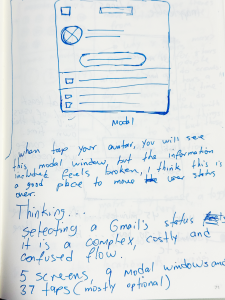 Modal
when tap your avatar, you will see
this modal window, but the information
included feels broken, I think this is
a good place to move the user status
over.
Thinking...
selecting a Gmail's status
It is a complex, costly and
confused flow.
5 screens, 9 modal windows and
37 taps (mostly optional)